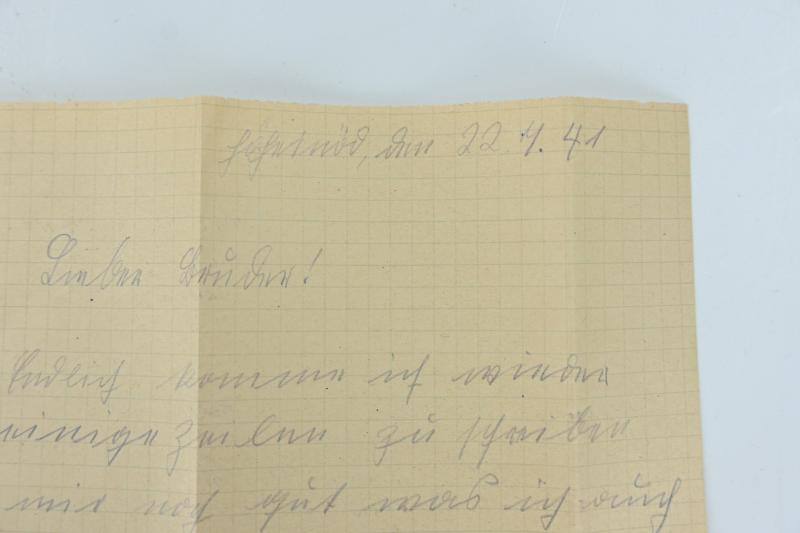 den 22. 4. 41
Lieber Bruder!
Endlich komme ich wieder
einige Zeilen zu schreiben
mir noch gut was ich auch